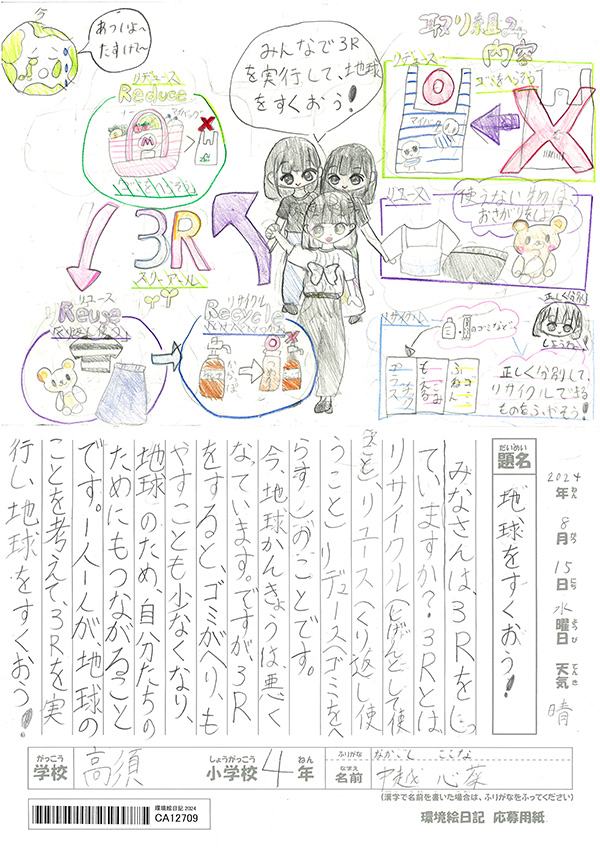 今
あついよ〜
たすけて〜
みんなで3R
を実行して、地球
をすくおう!
取り組みの
内容
リデュース
ゴミをへらす
マイバッグ
リデュース
Reduce
マイバッグ
3R
スリーアール
リユース
使うない物は
おさがりをしよう
リユース
Reuse
くり返し使う
リサイクル
Recycle
リサイクル
のゴミなど…
もえる
ふねん
正しく分別
しようね!
正しく分別して、
リサイクルできる
ものをふやそう!
だいめい
題名
地球をすくおう!
2024
年 ねん
8
月 がつ
15
日 にち
水
曜日 ようび
天気 てんき
晴
みなさんは、3Rをじっ
ていますか?3Rとは
リサイクル(しげんとして使
うこと)リユース(くり返し使
うこと)リデュース(ゴミをへ
らす)のことです。
今、地球かんきょうは、悪く
なています。ですが3R
をすると、ゴミがへり、も
やすことも少なくなり、
地球のため、自分たちの
ためにもつながること
です。一人一人が、地球の
ことを考えて、3Rを実
行し、地球をすくおう!
がっこう
学校
高須
しょうがっこう
小学校
4
ねん
年
ふりがな
なかごし ここな
なまえ
名前
中越 心菜
(漢字で名前を書いた場合は、ふりがなをふってください)
環境絵日記 2024
CA12709
環境絵日記 応募用紙